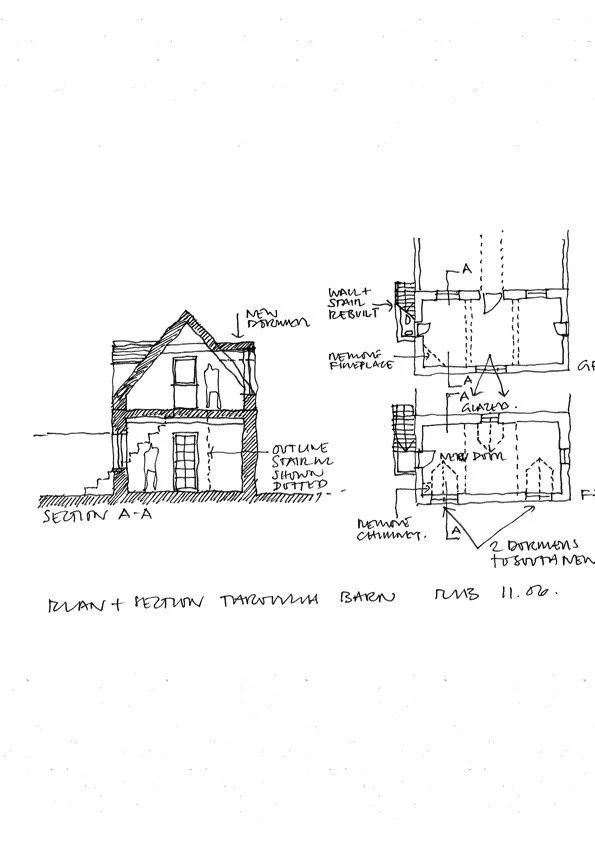 NEW
DORMER
OUTLINE
STAIR IN
SHOWN
DOTTED
SECTION A-A
WALL +
STAIR
REBUILT
REMOVE
FIREPLACE
A
A
A
GLAZED.
NEW DOOR
REMOVE
CHIMNEY.
A
2 DORMERS
TO SOUTH NEW
PLAN + SECTION THROUGH BARN 11.06.